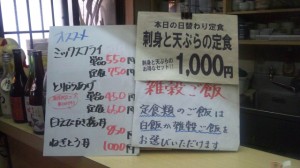 オススメ
ミックスフライ
単品 550円
定食 750円
とりからあげ
単品 450円
定食 650円
850円
1000円
本日の日替わり定食
刺身と天ぷらの定食
刺身と天ぷらの
お得なセット!!
1,000円
雑穀ご飯
定食類のご飯は
白飯か雑穀ご飯を
お選びいただけます